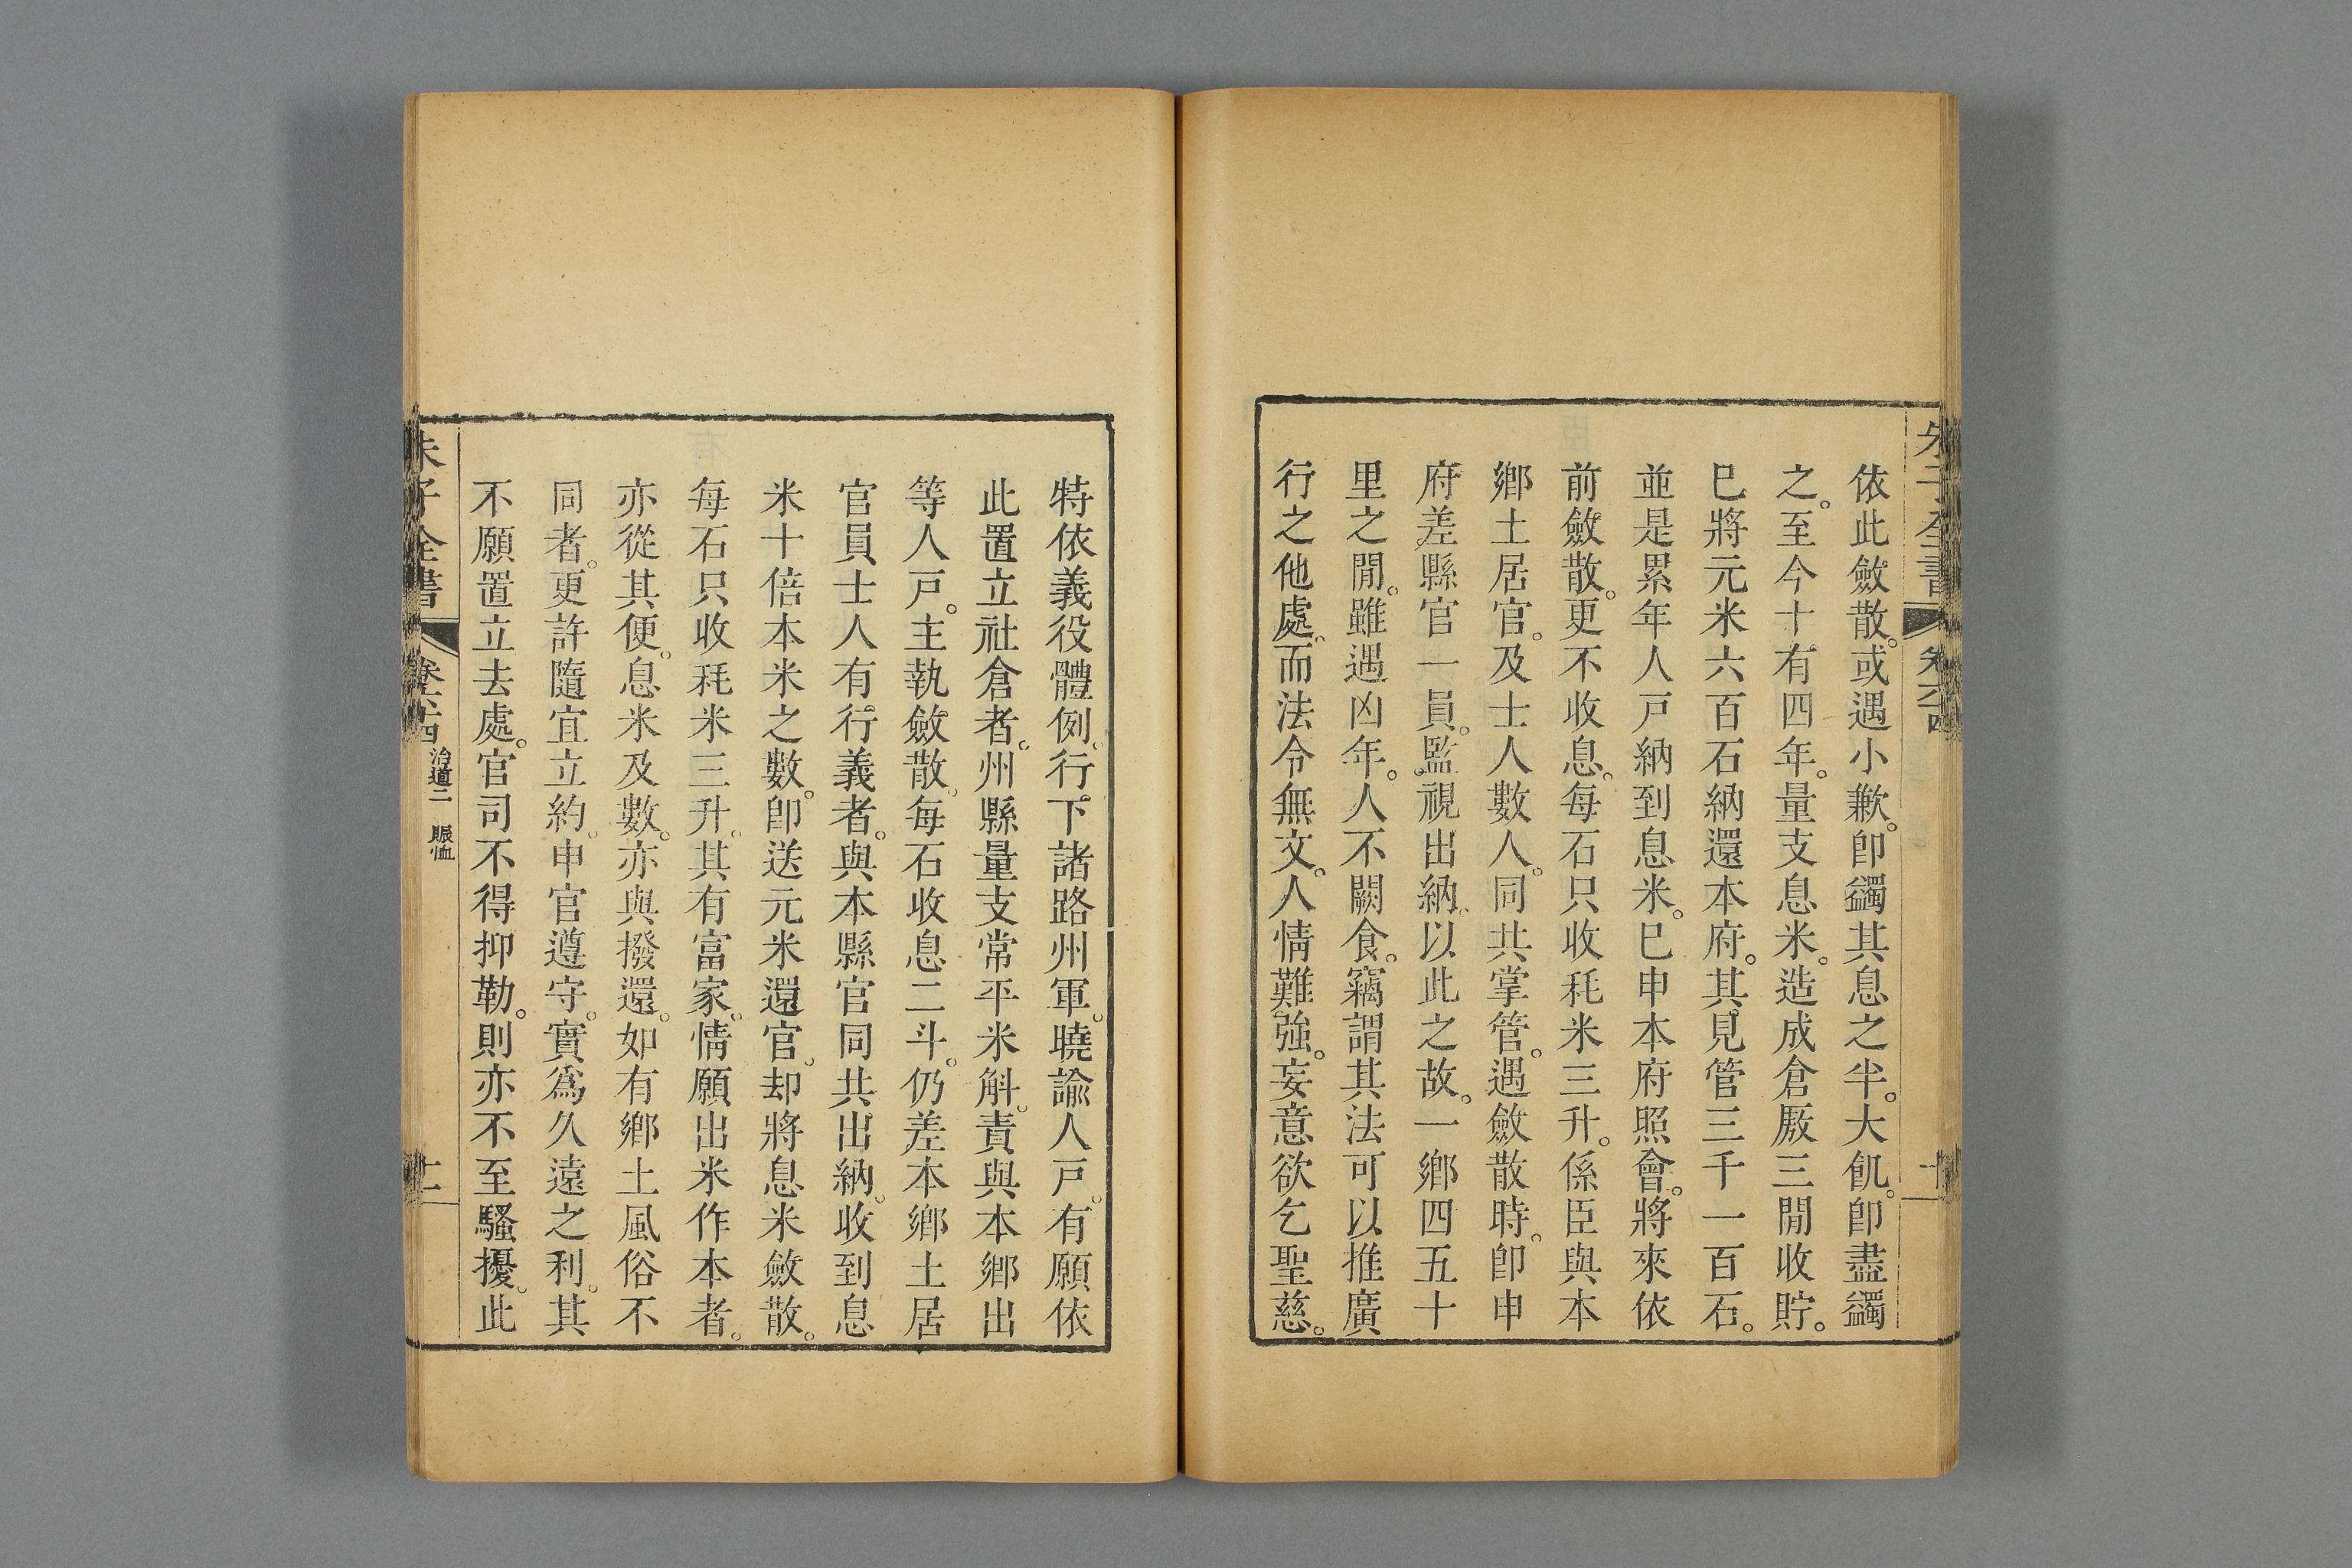 依此斂散。或遇小歉。卽蠲其息之半。大飢。卽盡蠲
之。至今十有四年。量支息米。造成倉厫三閒收貯。
已將元米六百石納還本府。其見管三千一百石。
並是累年人戸納到息米。已申本府照會。將來依
前斂散。更不收息。每石只收秏米三升。係臣與本
鄉土居官。及士人數人。同共掌管。遇斂散時。卽申
府差縣官一員。監視出納。以此之故。一鄉四五十
里之閒。雖遇凶年。人不闕食。竊謂其法可以推廣
行之他處。而法令無文。人情難強。妄意欲乞聖慈。
特依義役體例。行下諸路州軍。曉諭人戸。有願依
此置立社倉者。州縣量支常平米斛。責與本鄉出
等人戸。主執斂散。每石收息二斗。仍差本鄉土居
官員士人有行義者。與本縣官同共出納。收到息
米十倍本米之數。卽送元米還官。却將息米斂散。
每石只收秏米三升。其有富家。情願出米作本者。
亦從其便。息米及數。亦與撥還。如有鄉土風俗不
同者。更許隨宜立約。申官遵守。實爲久遠之利。其
不願置立去處。官司不得抑勒。則亦不至騷擾。此
朱子全書 卷六十四 治道二 賑恤